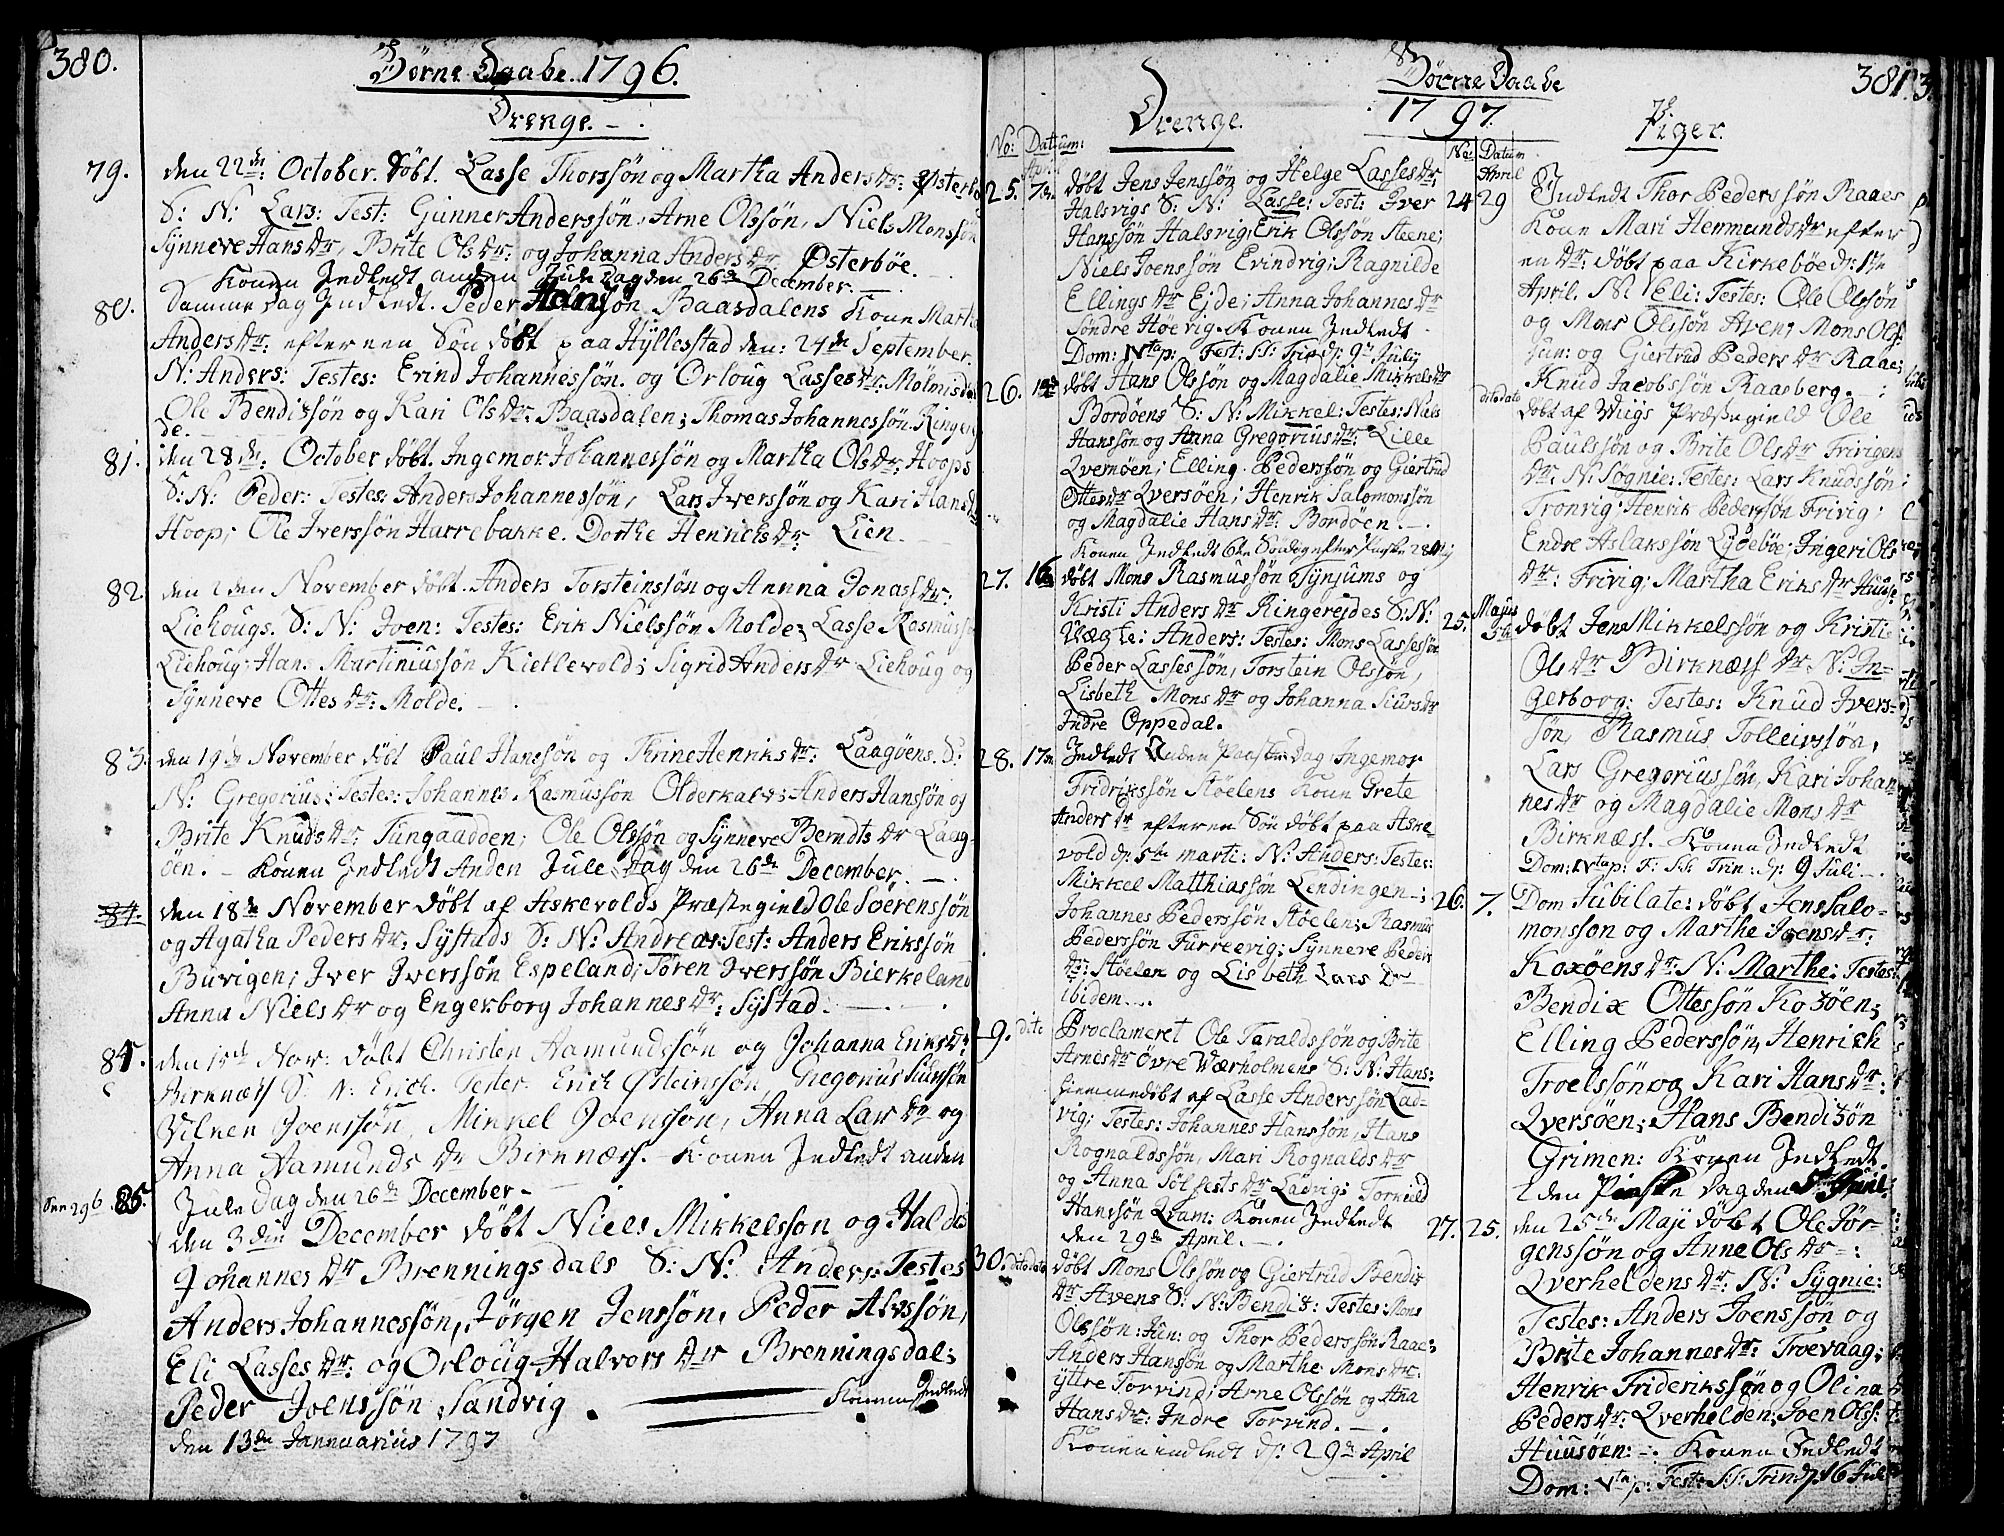 380.
Børne Daabe. 1796.
Drenge. -
79. den 22de: October. døbt. Lasse Thorssøn og Martha Andersdr:
S: N: Lars: Test: Gunner Anderssøn, Arne Olssøn, Niels Monssøn
Synneve Hansdr, Brite Olsdr: og Johanna Andersdr Østerbøe.
Konen Indledt anden Jule Dag den 26de December. -
80. Samme dag Indledt. Peder Hanssøn Baasdalens Kone Martha
Andersdr: efter een Søn døbt paa Hyllestad den: 24de September.
N: Anders: Testes: Erind Johannessøn. og Orloug Lassesdr:
Ole Bendixsøn og Kari Olsdr: Baasdalen; Thomas Johannessøn. Ringere
de.
81. den 28de: October døbt. Ingemor Johannessøn og Martha Olsdr: Hoops
S: N: Peder: Testes: Anders Johannessøn, Lars Iverssøn og Kari Hansdr
Hoop; Ole Iverssøn Harrebakke. Dorthe Henrichsdr: Lien.
82. den 2den November døbt. Anders Torsteinssøn og Annna Jonasdr:
Liehougs. S: N: Joen: Testes: Erik Nielssøn Molde; Lasse Rasmussøn
Liehoug; Hans Martiniussøn Kiellevold; Sigrid Andersdr Liehoug og
Synneve Ottesdr: Molde. -
83. den 19de November døbt Paul Hanssøn og Thrine Henriksdr: Laagøens. S:
N: Gregorius: Testes: Johannes Rasmussøn Olderkalv; Anders Hanssøn og
Brite Knudsdr: Sungaadden; Ole Olssøn og Synneve Berndtsdr Laag-
øen. - Konen Indledt Anden Jule Dag den 26de December. -
84. den 18de November døbt af Askevolds Præstegield Ole Soerenssøn
og Agatha Pedersdr: Systads S: N: Andreas: Test: Anders Erikssøn
Buvigen; Iver Iverssøn Espeland; Søren Iverssøn Bierkeland
Anna Nielsdr og Engerborg Johannesdr: Systad. -
84. den Nov: døbt Christen Aamundssøn og Johanna Eriksdr:
Birknæss S: N: Erich. Testes: Erich Østeinssøn, Gregorius Siurssøn
Joenssøn, Mikkel Joenssøn, Anna Larsdr og
Anna Aamundsdr Birknæss. - Konen Indledt anden
Jule Dag den 26de December. -
85. den 3die December døbt Niels Mikkelssøn og Haldis
Johannesdr Brenningsdals S: N: Anders: Testes
Anders Johannessøn, Jørgen Jenssøn, Peder Alvssøn,
Eli Lassesdr: og Orloug Halvorsdr Brenningsdal;
Peder Joenssøn Sandvig. Konen Indledt
den 13de Jannuarius 1797
381.
Børne Daabe
1797.
Drenge.
No: Datum:
25. 7de døbt Jens Jenssøn og Helge Lassesdr;
Halsvigs S: N: Lasse: Test: Iver
Hanssøn Halsvig; Erik Olssøn Steene;
Niels Joenssøn Erindvig; Ragnilde
Ellingsdr Ejde; Anna Johannesdr
Søndre Høevig. Konen Indledt
Dom: Vtap: Fest: SS: Trip d: 9de July
26. døbt Hans Olssøn og Magdalie Mikkelsdr
Bordøens S: N: Mikkel: Testes: Niels
Hanssøn og Anna Gregoriusdr: Lille
Qvernøen; Elling Pederssøn og Giertrud
Ottesdr Qversøen; Henrik Salomonssøn
og Magdalie Hansdr: Bordøen. -.
27. 16 døbt Mons Rasmussøn Tynjums og
Kristi Andersdr Ringereides S: N:
Anders: Testes: Mons Lassessøn
Peder Lassessøn, Torstein Olssøn,
Lisbeth Monsdr og Johanna Siursdr
Indre Oppedal.
28. 17de Indledt Anden Paaske Dag Ingemor
Fridrikssøn Støelens Kone Grete
Andersdr efter en Søn døbt paa Aske-
vold d: 5te marti: N: Anders: Testes:
Mikkel Matthiassøn Lendingen -;
Johannes Pederssøn Støelen; Rasmus
Pederssøn Furreevig; Synneve Peders
dr: Støelen og Lisbeth Larsdr
ibidem. -.
29. dito Proclameret Ole Taraldssøn og Brite
Arnesdr Øvre Værholmens S: N: Hans:
Hiemmedøbt af Lasse Anderssøn Lad-
vig; Testes: Johannes Hanssøn, Hans
Rognaldssøn, Mari Rognaldsdr
og Anna Sølfestsdr Ladvig; Torkild
Hanssøn Qvam: Konen Indledt
den 29de April. -.
30. dito dato døbt Mons Olssøn og Giertrud Bendix
dr Avens S: N: Bendix: Testes: Mons
Olssøn: Jun: og Thor Pederssøn Raae;
Anders Hanssøn og Marthe Monsdr:
yttre Torvind; Arne Olssøn og Ana
Hansdr: Indre Torvind. -.
Konen indledt d: 29de April
Piger.
No: Datum
April
24 29 Indledt Thor Pederssøn Raaes
Kone Mari Hemmundsdr efter
en dr: døbt paa Kirkebøe d: 17e
April. N: Eli: Testes: Ole Olssøn
og Mons Olssøn Aven; Mons Olss:
Jun: og Giertrud Pedersdr Raae;
Knud Jacobssøn Raasberg. -.
ditodato døbt af Præstegield Ole
Paulssøn og Brite Olsdr Frivigens
dr: N: Sognie: Testes: Lars Knudssøn
Tronvig; Henrik Pederssøn Frivig;
Endre Aslakssøn Lydebøe; Ingeri Ols
dr: Frivig; Martha Eriksdr
25. Majus 5te døbt Jens Mikkelssøn og Kristi
Olsdr Birknæss dr. N: In-
gerborg: Testes: Knud Ivers-
søn, Rasmus Tolleivssøn,
Lars Gregoriussøn, Kari Johan-
nesdr og Magdalie Monsdr
Birknæss. - Konen Indledt
Dom: Vtap: F: SS: Trin: d: 9 Juli -.
26. 7. Dom Jubilate: døbt Jens Salo-
monssøn og Marthe Joensdr:
Koxøens dr: N: Marthe: Testes:
Bendix Ottessøn Koxøen;
Elling Pederssøn, Henrich
Troelssøn og Kari Hansdr:
Qversøen; Hans Bendixøn
Grimen: Konen Indledt.
27. 25. den 25de Maji døbt Ole Jør-
genssøn og Anne Olsdr -:
Qverheldens dr: N: Sygnie:
Testes: Anders Joenssøn og
Brite Johannesdr: Troevaag;
Henrik Friderikssøn og Olina
Pedersdr: Qverhelden; Joen Olss:
Huusøen: -. Konen Indledt
Dom: Vta p: Fest: SS: Trin: d: 16 Juli